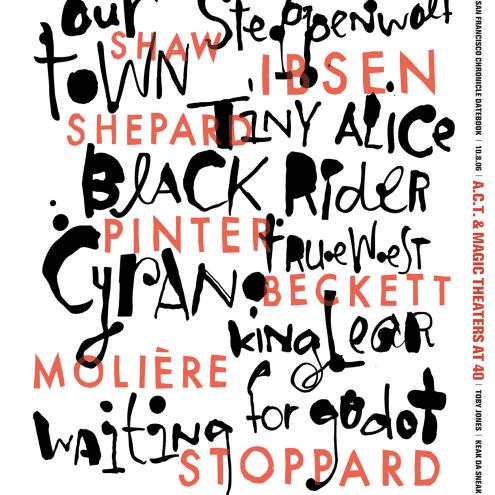 our Steppenwolf
SHAW
toWN
IBSEN
SHEPARD
TiNY ALiCe
BlACK RideR
PINTER
tRUeWesT
CyRANo
BECKETT
king LeaR
MOLIÈRE
waiting for godot
STOPPARD
SAN FRANCISCO CHRONICLE DATEBOOK | 10.8.06 | A.C.T. & MAGIC THEATERS AT 40 | TOBY JONES | KEAK DA SNEAK